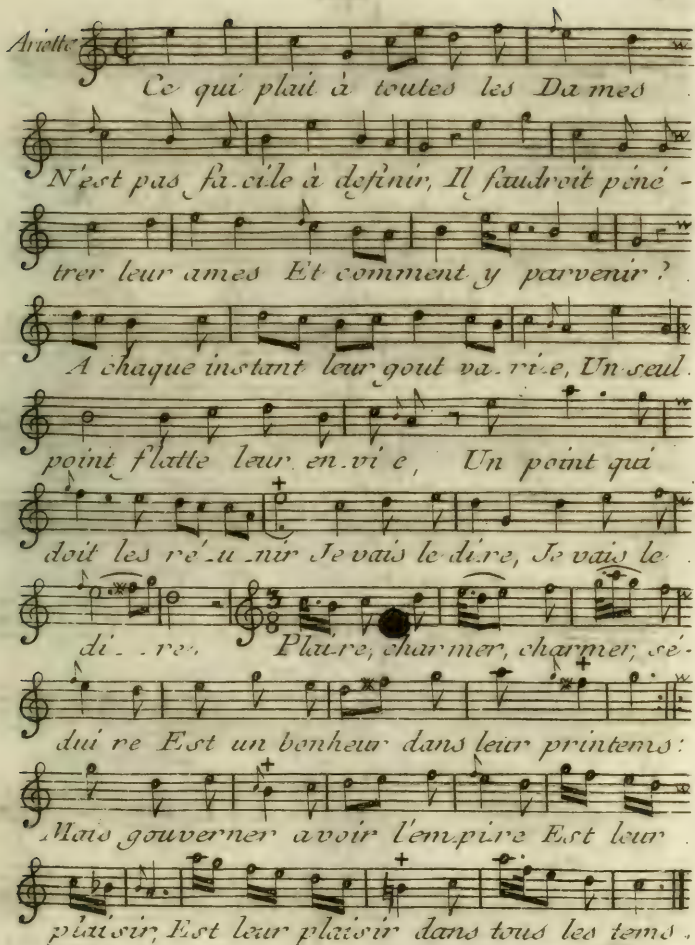 Ariette
Ce qui plait à toutes les Da mes
N'est pas fa-cile à definir, Il faudroit péné-
trer leur ames Et comment y parvenir?
A chaque instant leur gout va-ri-e, Un seul
point flatte leur en-vi e, Un point qui
doit les ré-u-nir Je vais le di-re, Je vais le
di--re, Plaire, charmer, charmer, sé-
dui re Est un bonheur dans leur printems:
Mais gouverner avoir l'em-pi-re Est leur
plaisir, Est leur plaisir dans tous les tems.